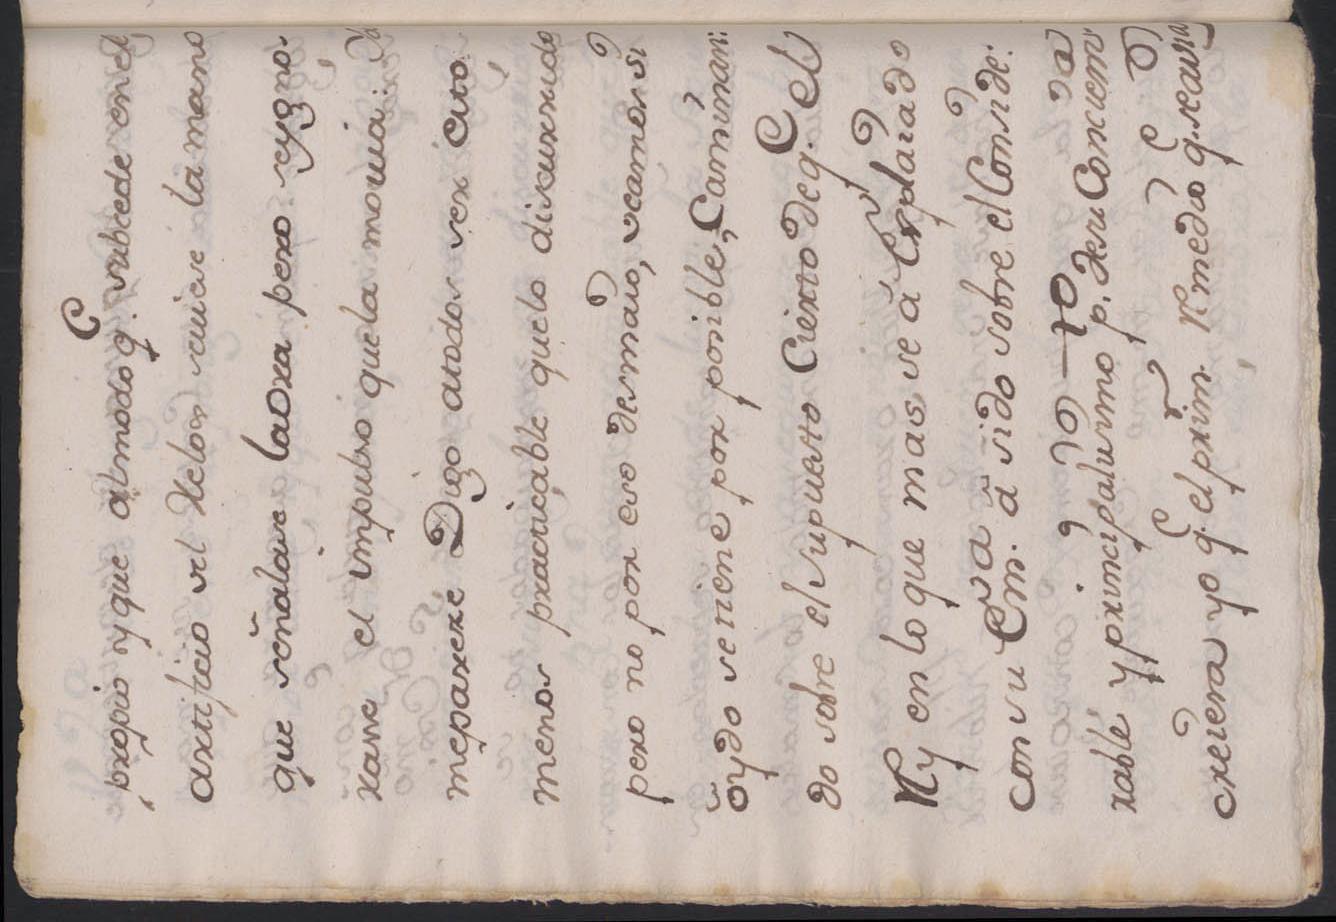 propio y que al modo q.e subcede en el
artificio del Relox se uiese la mano
que señalase la Ora pero se ygno-
rase el impulso que la mouia:
me parexe Digo a todos ser esto
menos practicable que lo discurrido
pero no por eso desmaio, veamos si
oydo se tiene por posible, Caminan-
do sobre el supuesto Cierto de q.e el
Rey en lo que mas se á Explaiado
Con su Em.a á sido sobre el Conside-
rable y principalisimo p.to de su Concien.a
creiera yo q.e el prim.r Remedio q.e